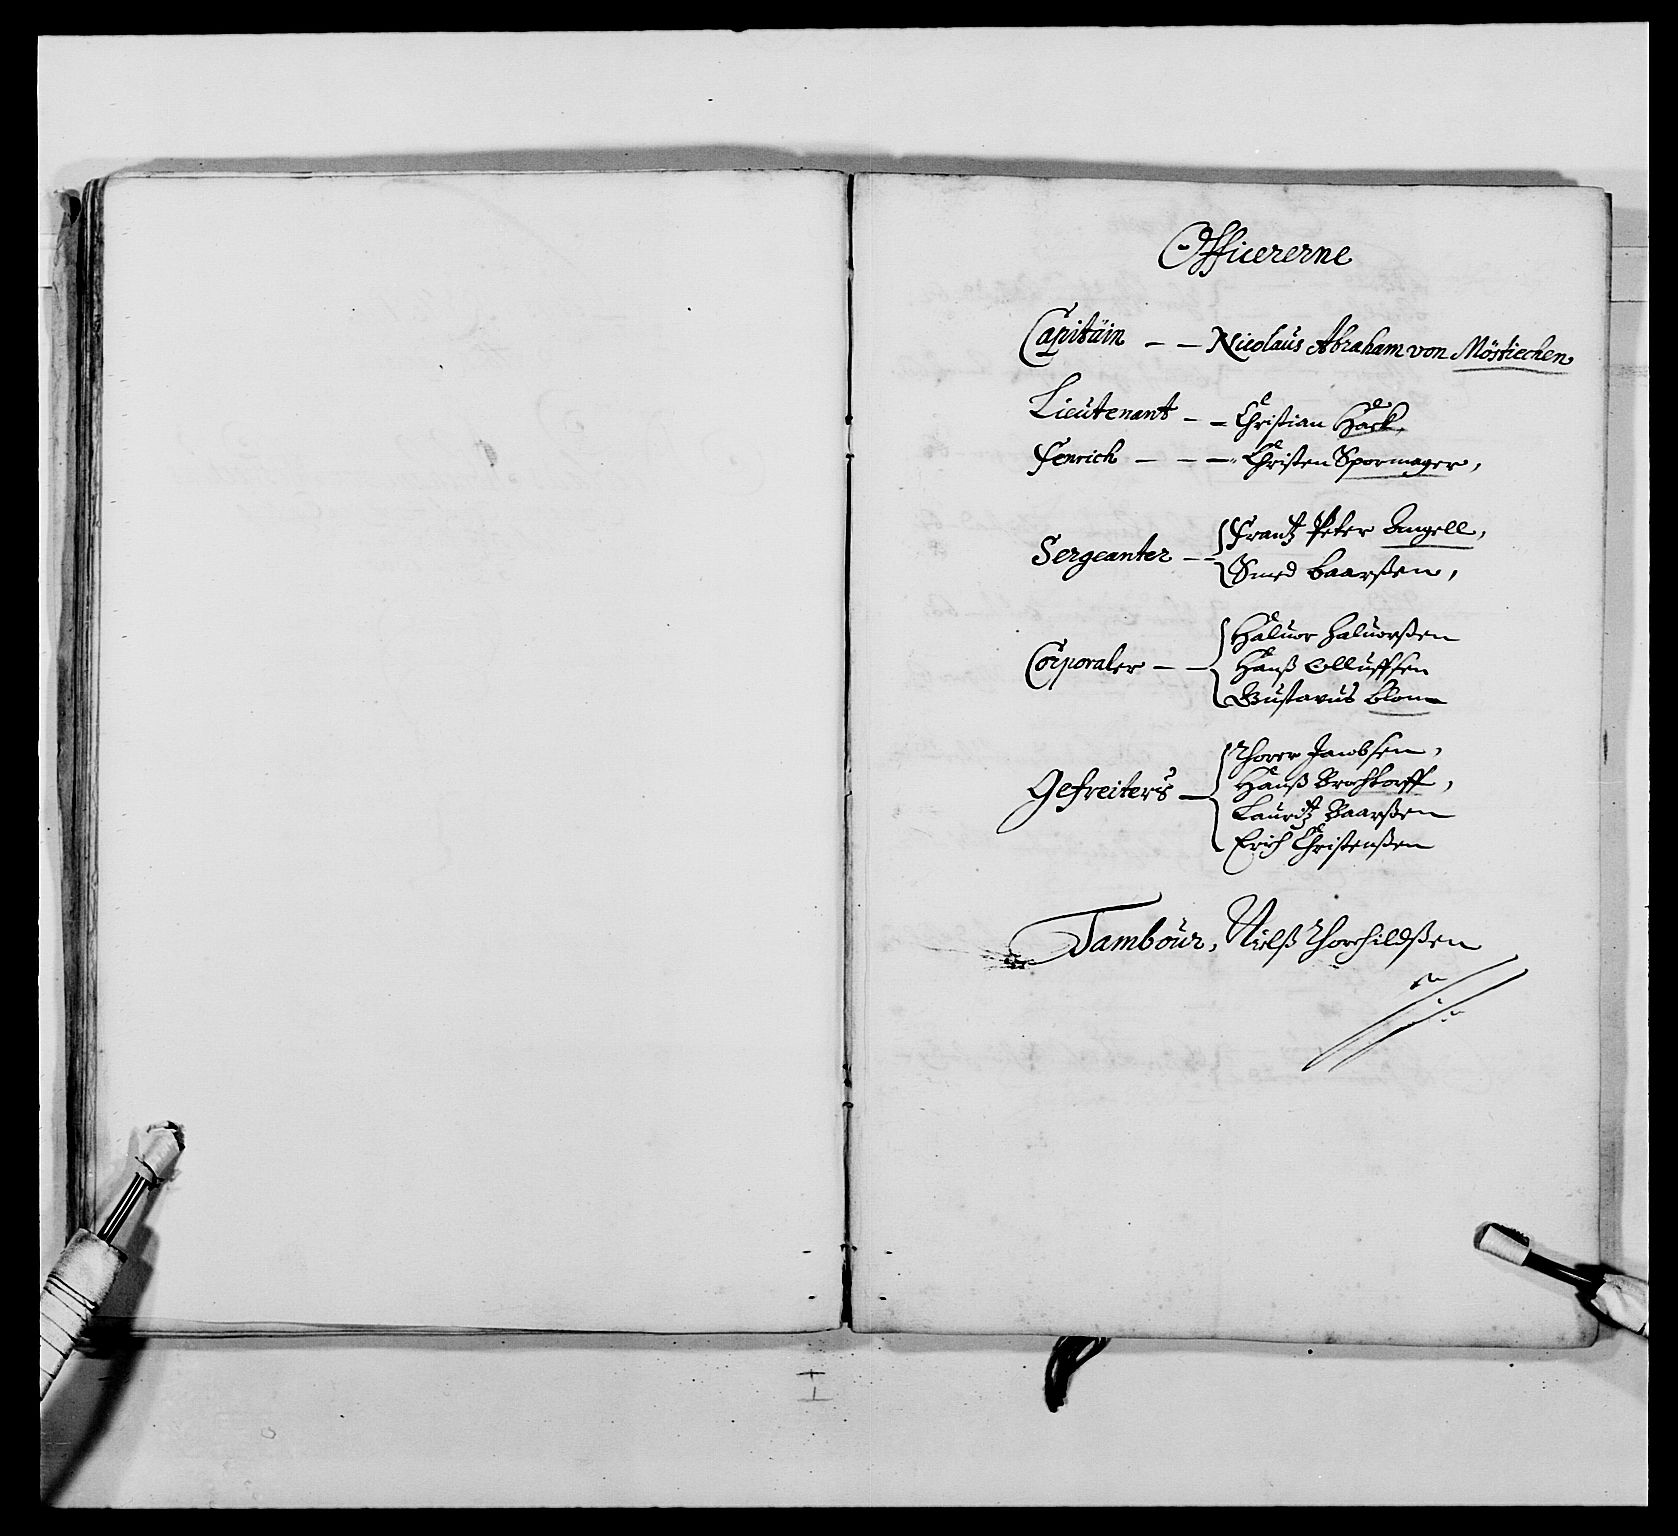 Officererne
Capitäin — — Nicolaus Abraham von Möstiechen
Lieutenant — — Christian Hack,
Fenrich — — — Christen Spormager,
Sergeanter — Frantz Peter Angell,
Smed Baarßen,
Corporaler — — Haluor Haluorßen
Hanß Olluffsen
Gustavus Blom
Gefreiters — Thorer Jacobsen,
Hanß Brochtorff,
Lauritz Baarßen
Erich Christenßen
Tambour, Nielß Thorchildßen